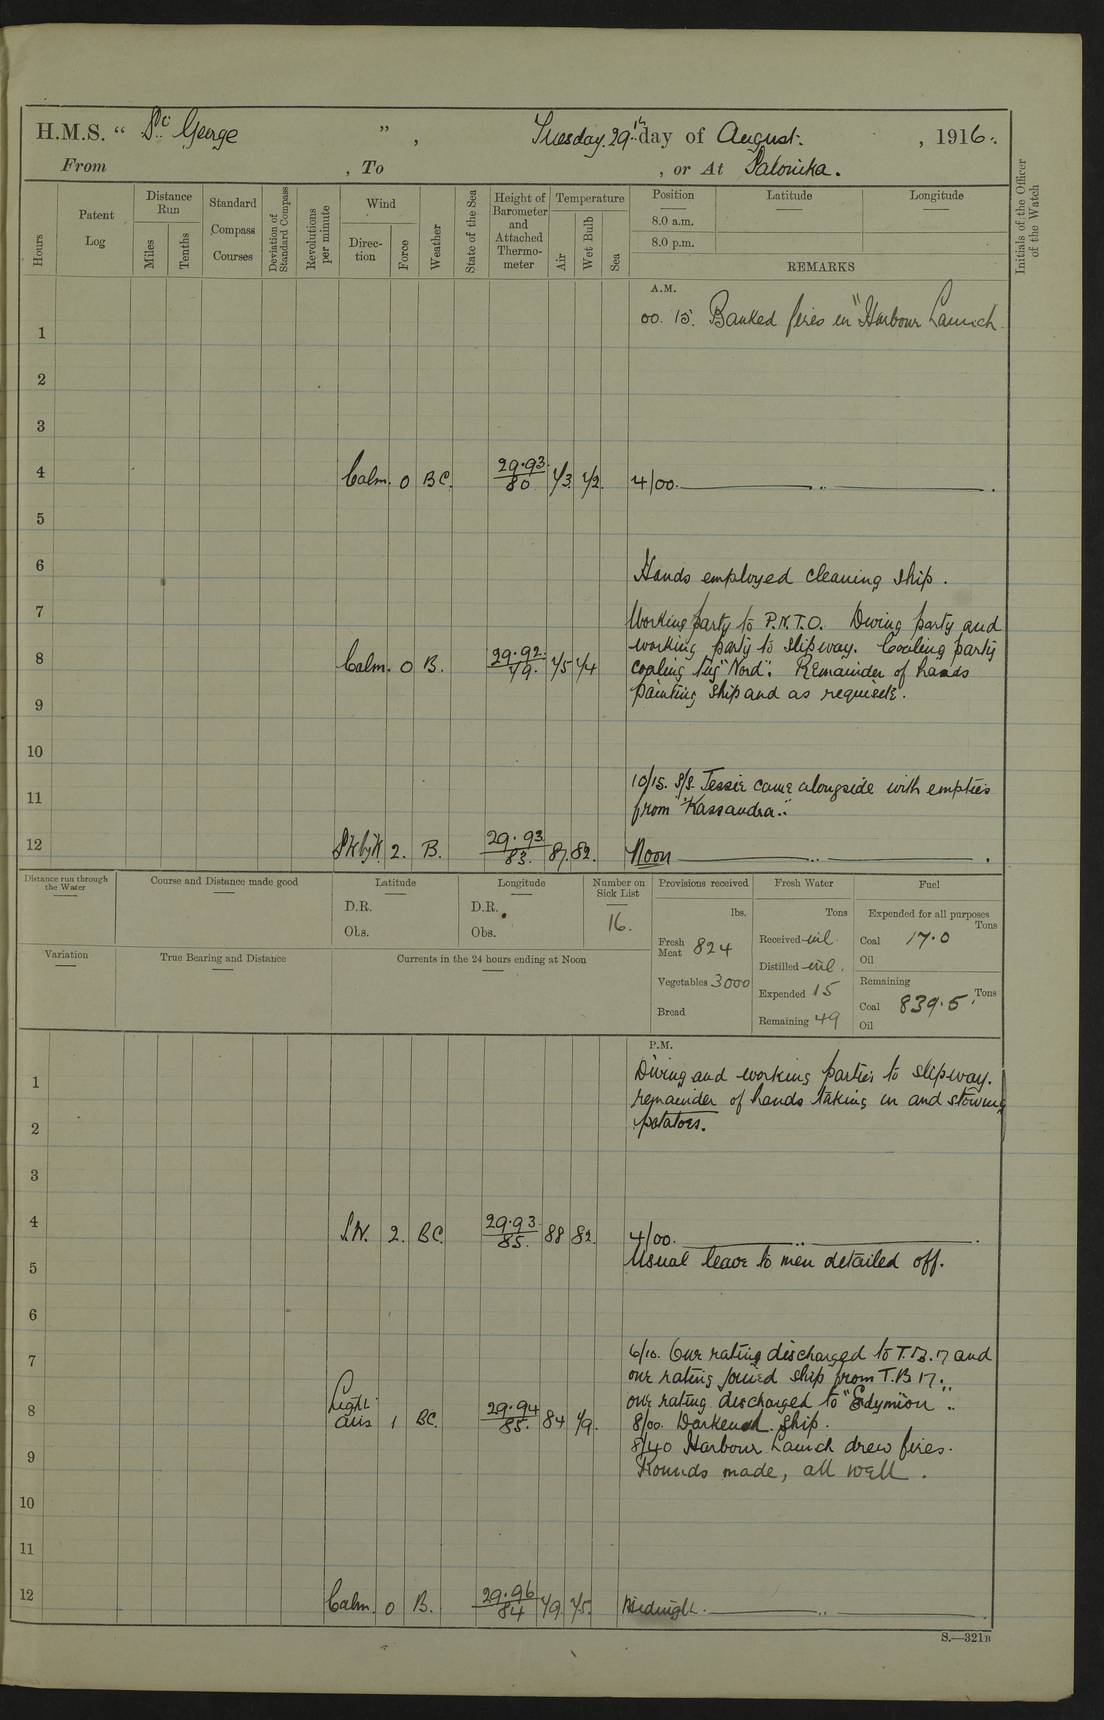 H.M.S. “ St George ” , Tuesday. 29th day of August. , 1916.
From , To , or At Salonika.
Hours
Patent Log
Distance Run
Miles
Tenths
Standard Compass Courses
Deviation of Standard Compass
Revolutions per minute
Wind
Direc-tion
Force
Weather
State of the Sea
Height of Barometer and Attached Thermo-meter
Temperature
Air
Wet Bulb
Sea
Position
8.0 a.m.
8.0 p.m.
Latitude
Longitude
REMARKS
Initials of the Officer of the Watch
A.M.
1 00. 15. Banked fires in "Harbour Launch
2
3
4 Calm. 0 BC. 29.93 80 73 72 4/00.
5
6 Hands employed cleaning ship.
7 Working party to P.N.T.O. Diving party and
working party to slipway. Coaling party
8 Calm. 0 B. 29.92 79. 75 74 coaling tug "Nord". Remainder of hands
painting ship and as requisite.
9
10
10/15. S/S. Jessie came alongside with empties
11 from "Kassandra".
12 SWbyW 2. B. 29.93 83. 87. 82. Noon
Distance run through the Water
Course and Distance made good
Latitude
D.R.
Obs.
Longitude
D.R.
Obs.
Number on Sick List
16.
Provisions received
lbs.
Fresh Meat 824
Vegetables 3000
Bread
Fresh Water
Tons
Received nil
Distilled nil.
Expended 15
Remaining 49
Fuel
Expended for all purposes
Tons
Coal 17.0
Oil
Remaining
Tons
Coal 839.5
Oil
Variation
True Bearing and Distance
Currents in the 24 hours ending at Noon
P.M.
1 Diving and working parties to slipway.
remainder of hands taking in and stowing
2 potatoes.
3
4 S.W. 2. BC. 29.93 85. 88 82. 4/00.
5 Usual leave to men detailed off.
6
7 6/10. One rating discharged to T.B. 17 and
one rating joined ship from T.B 17.
8 Light airs 1 BC. 29.94 85. 84 79. one rating discharged to "Edymion".
8/00. Darkened ship.
8/40 Harbour Launch drew fires.
9 Rounds made, all well.
10
11
12 Calm. 0 B. 29.96 84 79 75. Midnight.
S.—321B